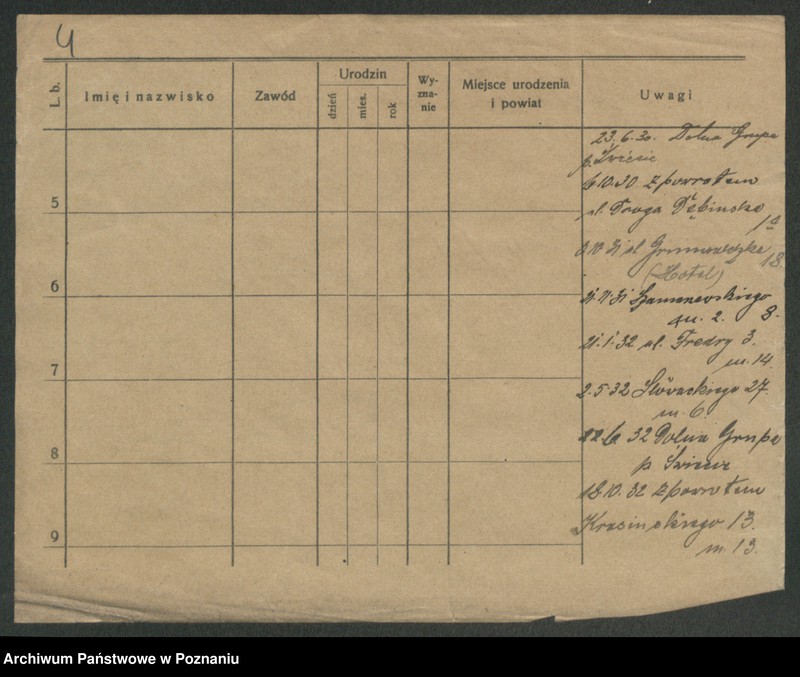 4
L. b.
Imię i nazwisko
Zawód
Urodzin
dzień
mies.
rok
Wy-
zna-
nie
Miejsce urodzenia
i powiat
Uwagi
23.6.30. Dolna Grupa
p. Świecie
10.30 z powrotem
5
ul. Droga Dębińska
1a
31 ul Grunwaldzka
18.
(Hotel)
6
31 Szamarzewskiego
m. 2. 8.
21.1.32 ul. Fredry 3.
m. 14.
7
2.5.32 Słowackiego 27.
m. 6.
22.6 32 Dolna Grupa
8
p Świecie
18.10.32 z powrotem
Krasińskiego 13.
9
m. 13.
Archiwum Państwowe w Poznaniu